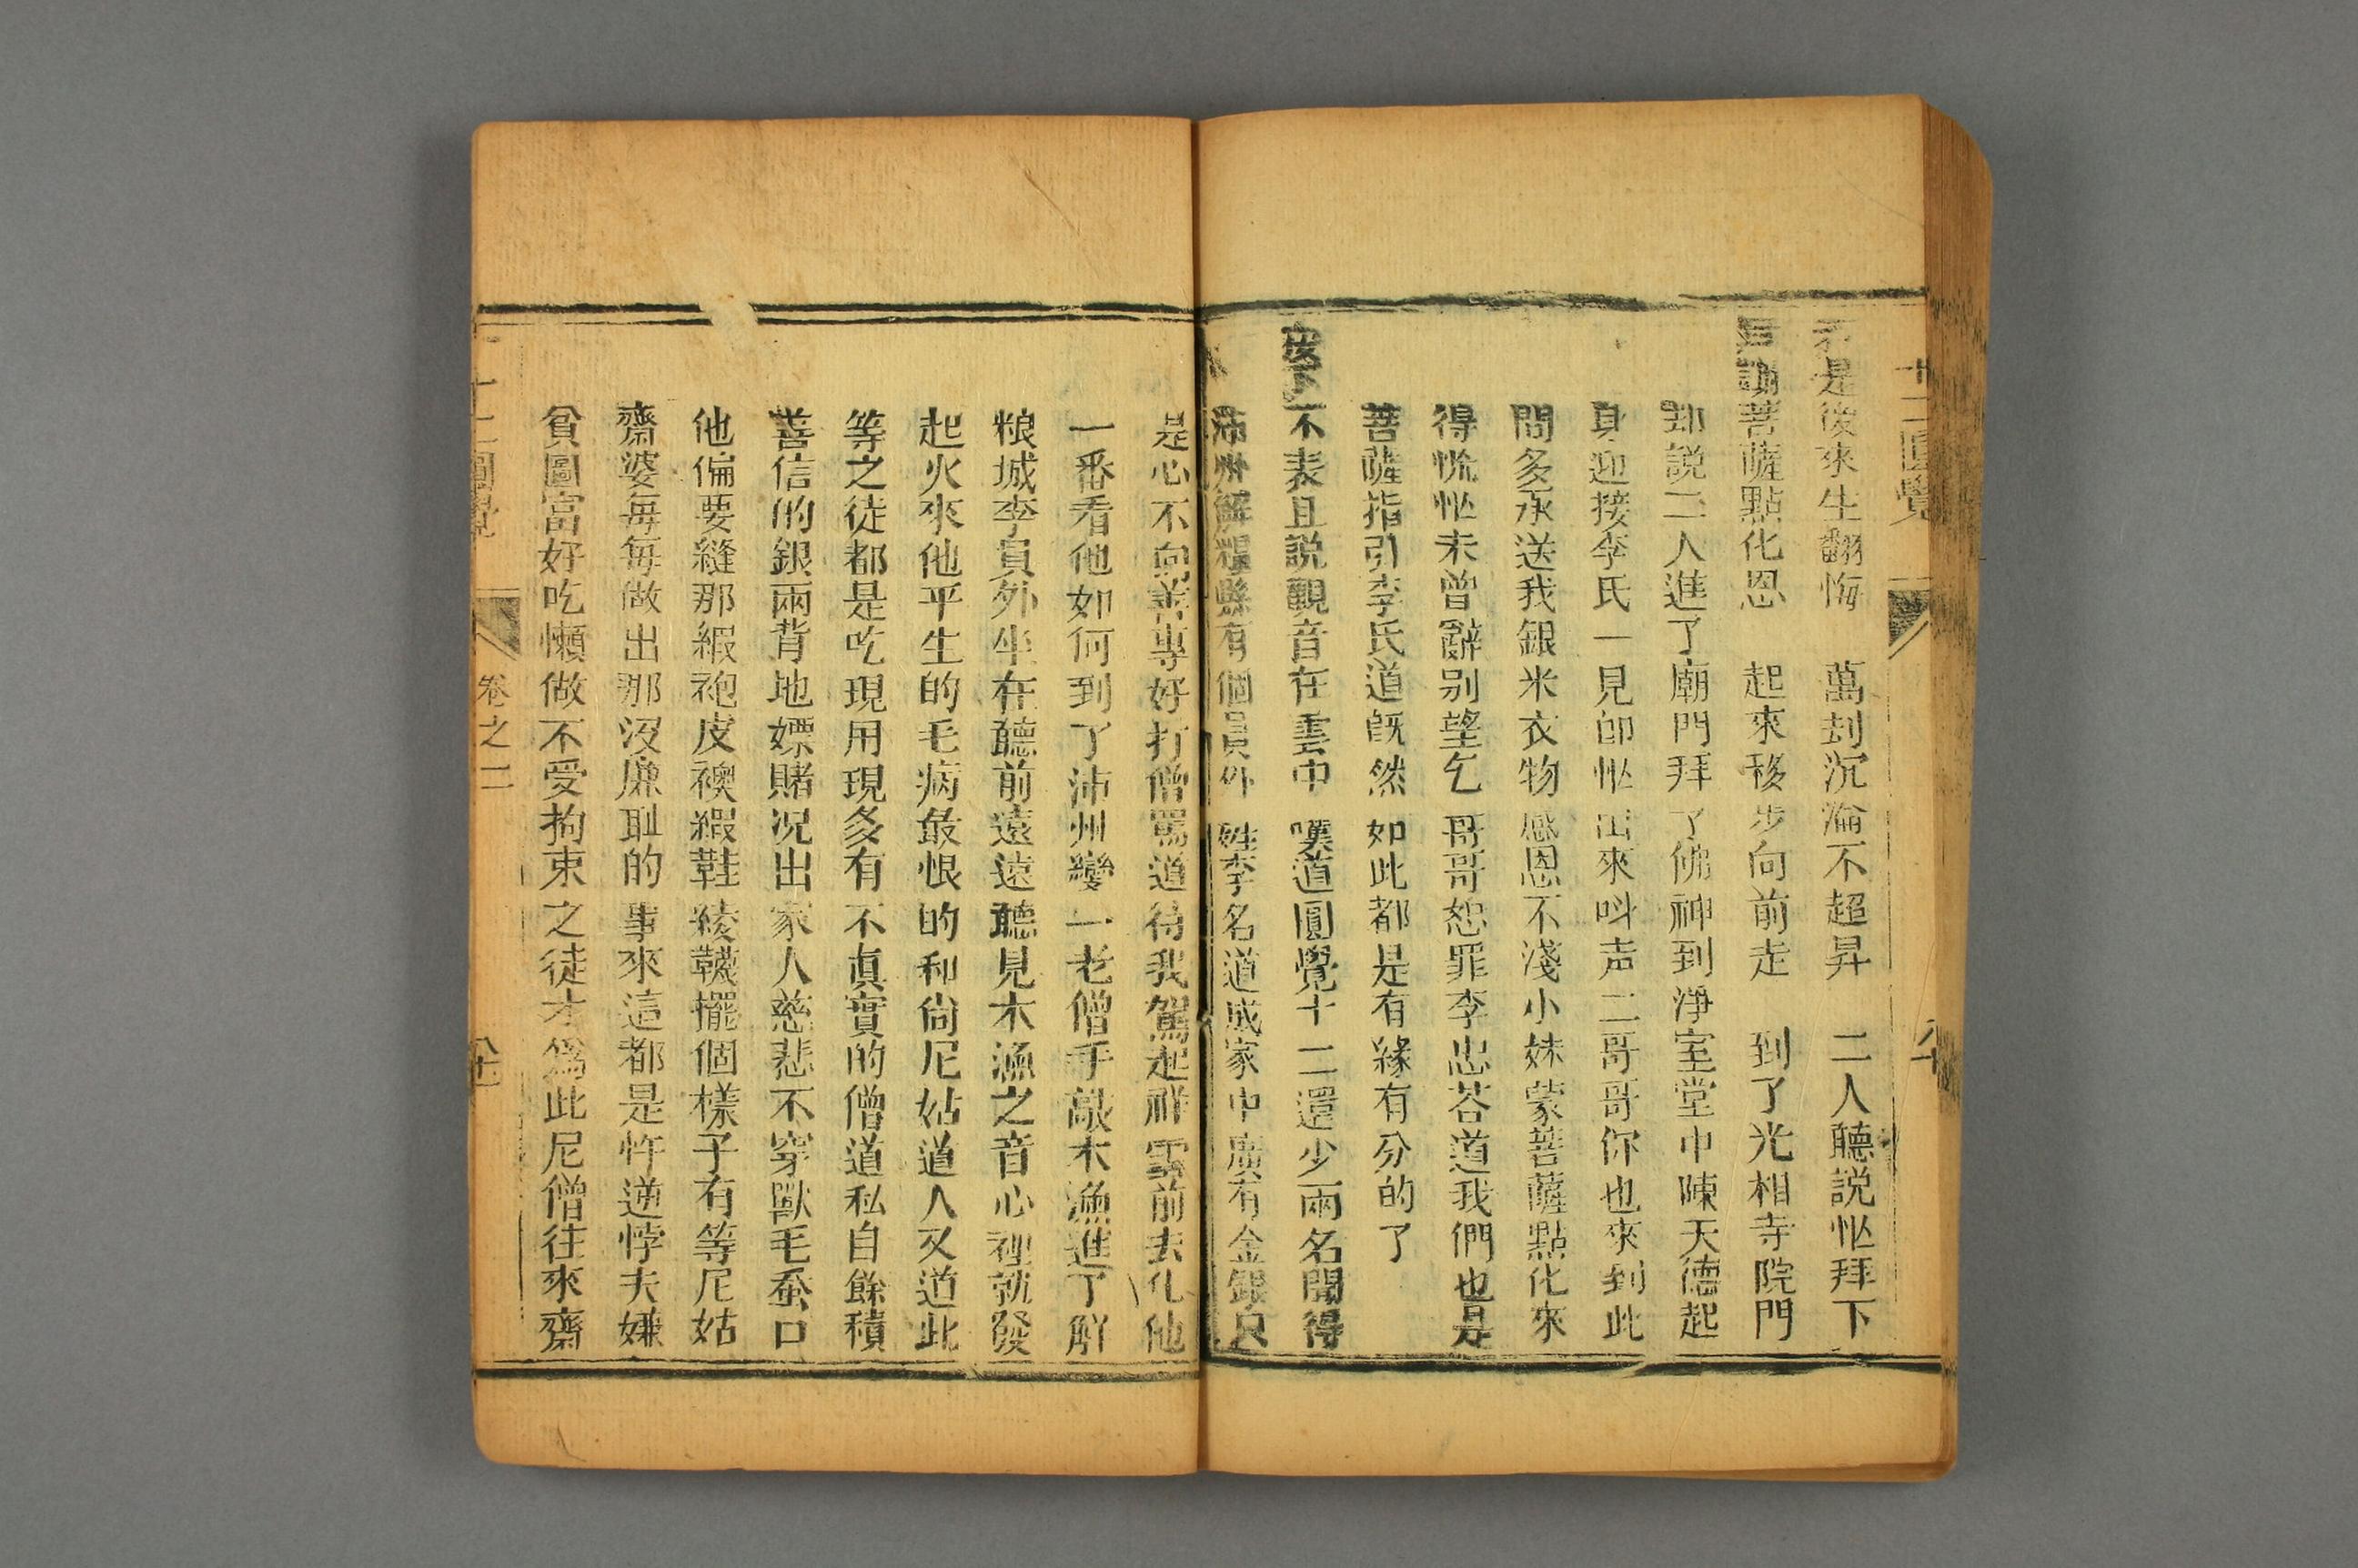 十二圓覺
不是後來生翻悔 萬刼沉淪不超昇 二人聽説怺拜下
謝菩薩點化恩 起來移步向前走 到了光相寺院門
却説二人進了廟門拜了佛神到淨室堂中陳天德起
身迎接李氏一見卽怺出來呌声二哥哥你也來到此
問多承送我銀米衣物感恩不淺小妹蒙菩薩點化來
得慌怺未曾辭别望乞哥哥恕罪李忠荅道我們也是
菩薩指引李氏道旣然如此都是有緣有分的了
不表且説觀音在雲中嘆道圓覺十二還少兩名聞得
沛州解糧縣有個員外姓李名道成家中廣有金銀只
是心不向善專好打僧罵道待我駕起祥雲前去化他
一番看他如何到了沛州變一老僧手敲木漁進了解
粮城李員外坐在聽前遠遠聽見木漁之音心裡就發
起火來他平生的毛病最恨的和尙尼姑道人又道此
等之徒都是吃現用現多有不眞實的僧道私自餘積
善信的銀兩背地嫖賭况出家人慈悲不穿獸毛蚕口
他偏要縫那緞袍皮襖緞鞋綾韈擺個樣子有等尼姑
齋婆每每做出那沒廉耻的事來這都是忤逆悖夫嫌
貧圖富好吃懶做不受拘束之徒才為此尼僧往來齋
十二圓覺 卷之二